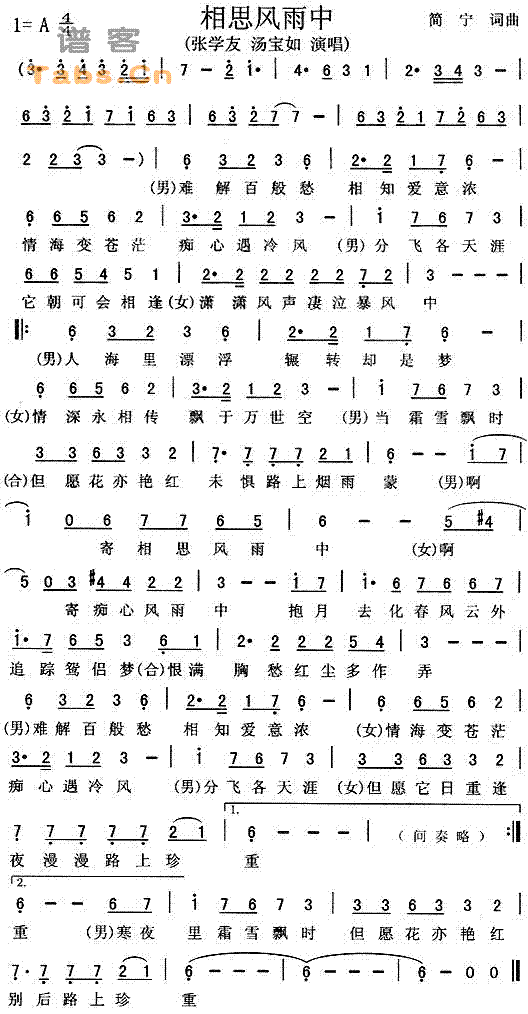 相思风雨中
1=A 4/4
简宁 词曲
(张学友 汤宝如 演唱)
谱客
Tabs.Cn
(3· 4 3 4 3 2 1 | 7 - 2 1· | 4· 6 3 1 | 2· 3 4 3 |
6 3 2 1 7 1 6 3 | 6 3 2 1 2 7 7 - | 6 3 2 1 7 1 6 3 |
2 2 3 3 -) | 6 3 2 3 6 | 2· 2 1 7 6 |
(男)难 解百般愁 相知爱意浓
6 6 5 6 2 | 3· 2 1 2 3 - | i 7 6 7 3 |
情海变苍茫 痴心遇冷风 (男)分飞各天涯
6 6 5 4 5 1 | 2· 2 2 2 2 2 7 2 | 3 - - - |
它朝可会相逢(女)潇 潇风声凄泣暴风 中
‖: 6 3 2 3 6 | 2· 2 1 7 6 |
(男)人 海里漂浮 辗转却是梦
6 6 5 6 2 | 3· 2 1 2 3 - | i 7 6 7 3 |
(女)情深永相传 飘于万世空 (男)当霜雪飘时
3 3 6 3 3 2 | 7· 7 7 7 2 1 | 6 - - i 7 |
(合)但愿花亦艳红 未惧路上烟雨 蒙 (男)啊
i 0 6 7 7 6 5 | 6 - - 5 #4 |
寄相思风雨 中 (女)啊
5 0 3 #4 4 2 2 | 3 - - i 7 | i· 6 7 6 6 7 |
寄痴心风雨 中 抱月 去化春风云外
i· 7 6 5 3 6 1 | 2· 2 2 2 5 4 | 3 - - - |
追踪鸳侣梦(合)恨满 胸愁红尘多作 弄
6 3 2 3 6 | 2· 2 1 7 6 - | 6 6 5 6 2 |
(男)难解百般愁 相知爱意浓 (女)情海变苍茫
3· 2 1 2 3 - | i 7 6 7 3 | 3 3 6 3 3 2 |
痴心遇冷风 (男)分飞各天涯 (女)但愿它日重逢
1.
7 7 7 7 7 2 1 | 6 - - - | (间奏略) :‖
夜漫漫路上珍 重
2.
6 - - 6 7 | i 7 6 7 3 | 3 3 6 3 3 2 |
重 (男)寒夜 里霜雪飘时 但愿花亦艳红
7· 7 7 7 2 1 | 6 - - - | 6 - - - | 6 - 0 0 ‖
别后路上珍 重